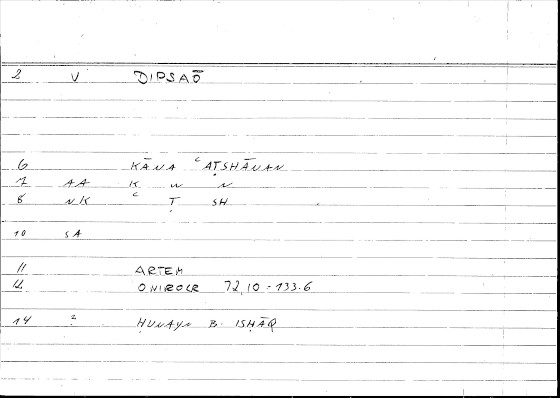 2 V DIPSAŌ
6 KĀNA ʿAṬSHĀNAN
7 AA K W N
8 NK ʿ Ṭ SH
10 SA
11 ARTEM
12 ONIROCR 72,10 = 133.6
14 2 ḤUNAYN B. ISḤĀQ